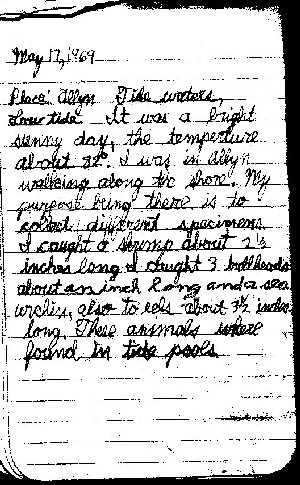 May 17, 1969
Place: Allyn Tide waters,
Low tide It was a bright
sunny day, the temperture
about 72°. I was in Allyn
walking along the shore. My
purpose being there is to
collect different specimens
I caught a shrimp about 2½
inches long I caught 3 bullheads
about an inch long and a sea
urchin, also to eels about 3½ inches
long. These animals where
found in tide pools